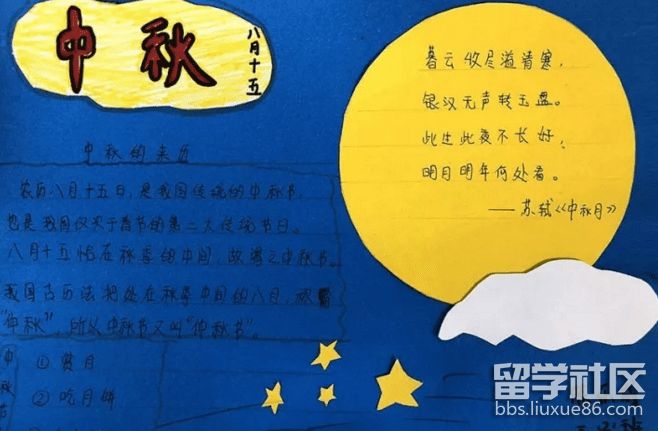 中秋
八月十五
暮云收尽溢清寒，
银汉无声转玉盘。
此生此夜不长好，
明月明年何处看。
——苏轼《中秋月》
中秋的来历
农历八月十五日，是我国传统的中秋节，
也是我国仅次于春节的第二大传统节日。
八月十五恰在秋季的中间，故谓之中秋节。
我国古历法把处在秋季中间的八月，
"仲秋"，所以中秋节又叫"仲秋节"。
中秋
① 赏月
② 吃月饼
留学社区
bbs.liuxue86.com